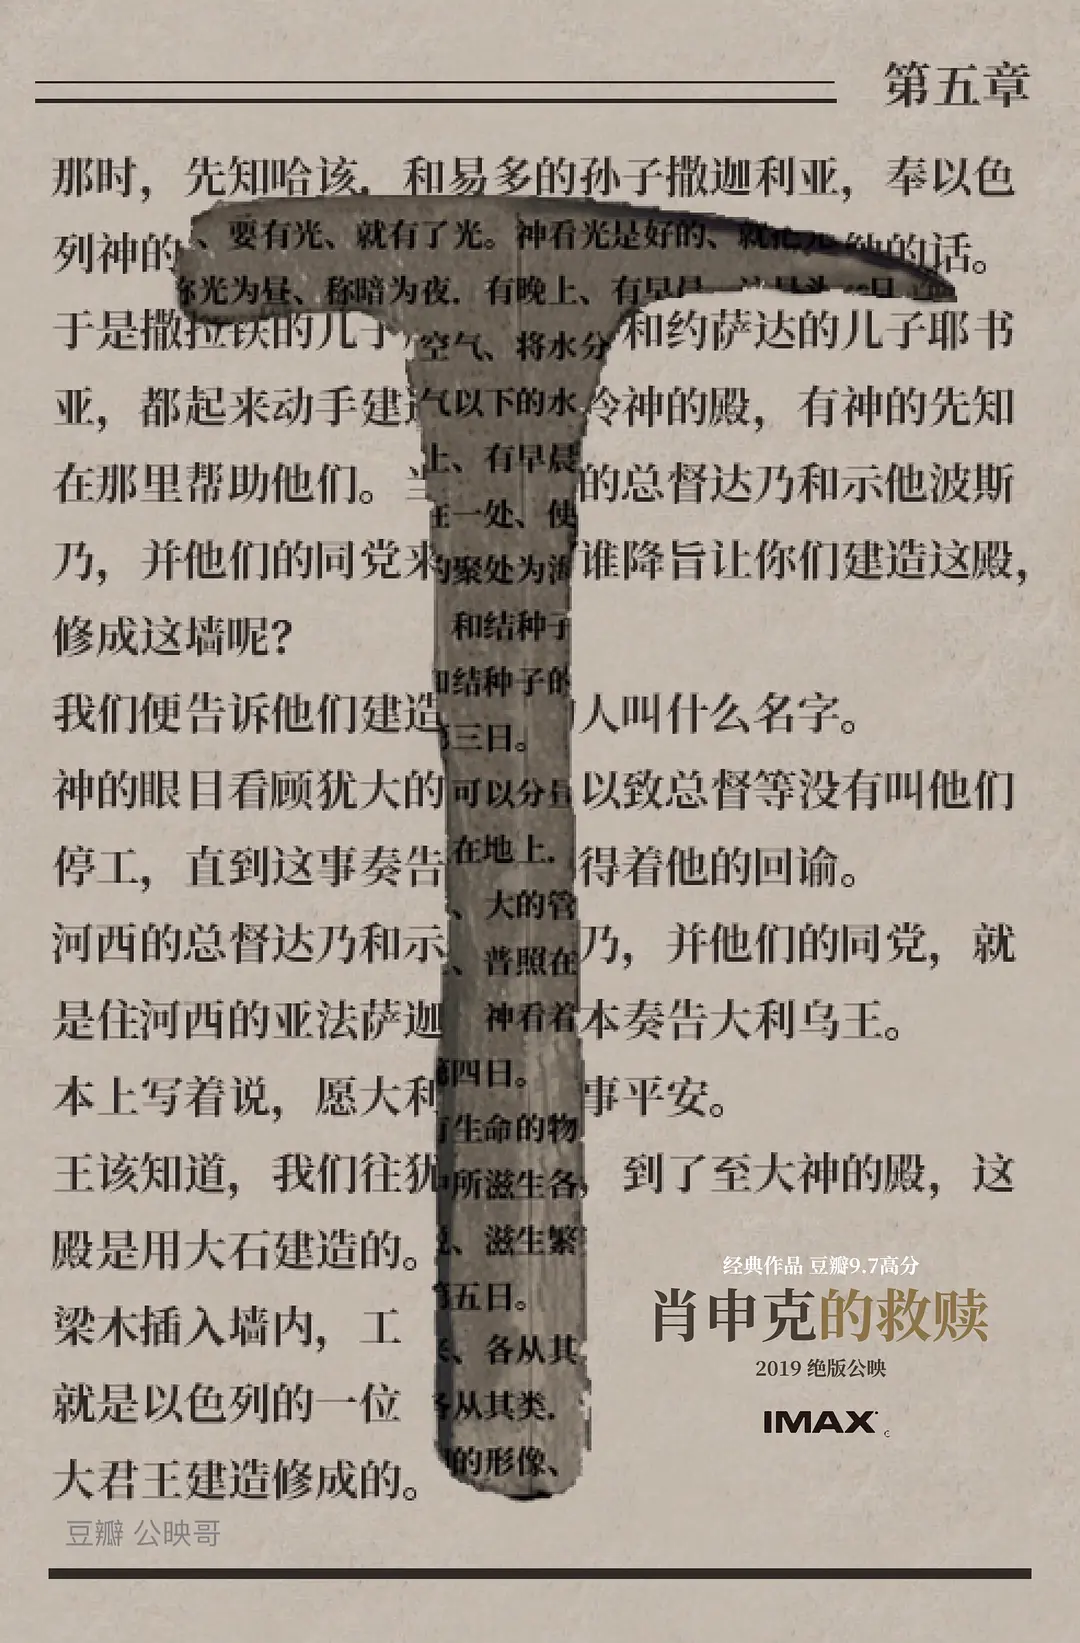 第五章
那时，先知哈该，和易多的孙子撒迦利亚，奉以色
、要有光、就有了光。神看光是好的、就把光
列神的 的话。
你光为昼、称暗为夜．有晚上、有早晨
于是撒拉铁的儿子 和约萨达的儿子耶书
空气、将水分
亚，都起来动手建造 冷神的殿，有神的先知
气以下的水
上、有早晨
在那里帮助他们。当 的总督达乃和示他波斯
在一处、使
乃，并他们的同党来 谁降旨让你们建造这殿，
的聚处为海
修成这墙呢？
和结种子
和结种子的
我们便告诉他们建造 人叫什么名字。
第三日。
神的眼目看顾犹大的 以致总督等没有叫他们
可以分昼
停工，直到这事奏告 得着他的回谕。
在地上．
、大的管
河西的总督达乃和示 乃，并他们的同党，就
、普照在
是住河西的亚法萨迦 本奏告大利乌王。
神看着
第四日。
本上写着说，愿大利 事平安。
有生命的物
王该知道，我们往犹 ，到了至大神的殿，这
中所滋生各
殿是用大石建造的。
、滋生繁
第五日。
梁木插入墙内，工
、各从其
就是以色列的一位
各从其类．
大君王建造修成的。
的形像、
经典作品 豆瓣9.7高分
肖申克的救赎
2019 绝版公映
IMAX
豆瓣 公映哥